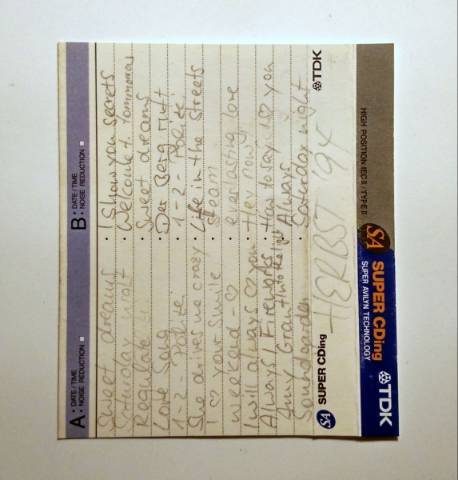 A: DATE/TIME
NOISE REDUCTION
Sweet dreams
Saturday night
Regulate
Love Song
1-2-Polizei
She drives me crazy
I ♡ your smile
weekend - ♡
I will always ♡ you
Always / Fireworks
Amy Grant
Soundgarden
B: DATE/TIME
NOISE REDUCTION
I Show you secrets
Welcome t. Tommorow
Sweet dreams
Der Berg ruft
1-2-Polizei
Life in the Streets
everlasting love
Here now
How to say I ♡ you
Always
Saturday night
SA SUPER CDing
HERBST '94
TDK
HIGH POSITION IECⅡ/TYPEⅡ
SA SUPER CDing
SUPER AVILYN TECHNOLOGY
TDK